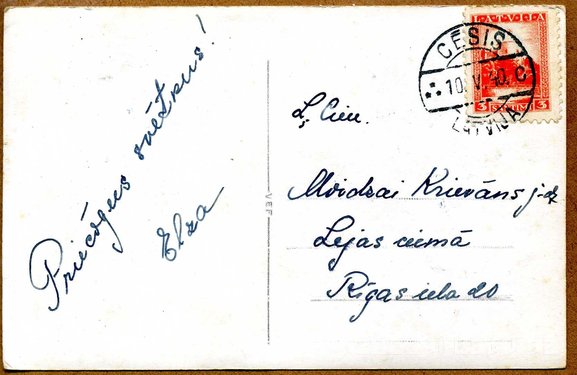 Priecīgus svētkus!
Elza
LATVIJA
3 3
CĒSIS
10. V. 40. C
LATVIJA
VEF
Ļ. Cien.
Krievāns j-dz
Lejas ciemā
Rīgas iela 20